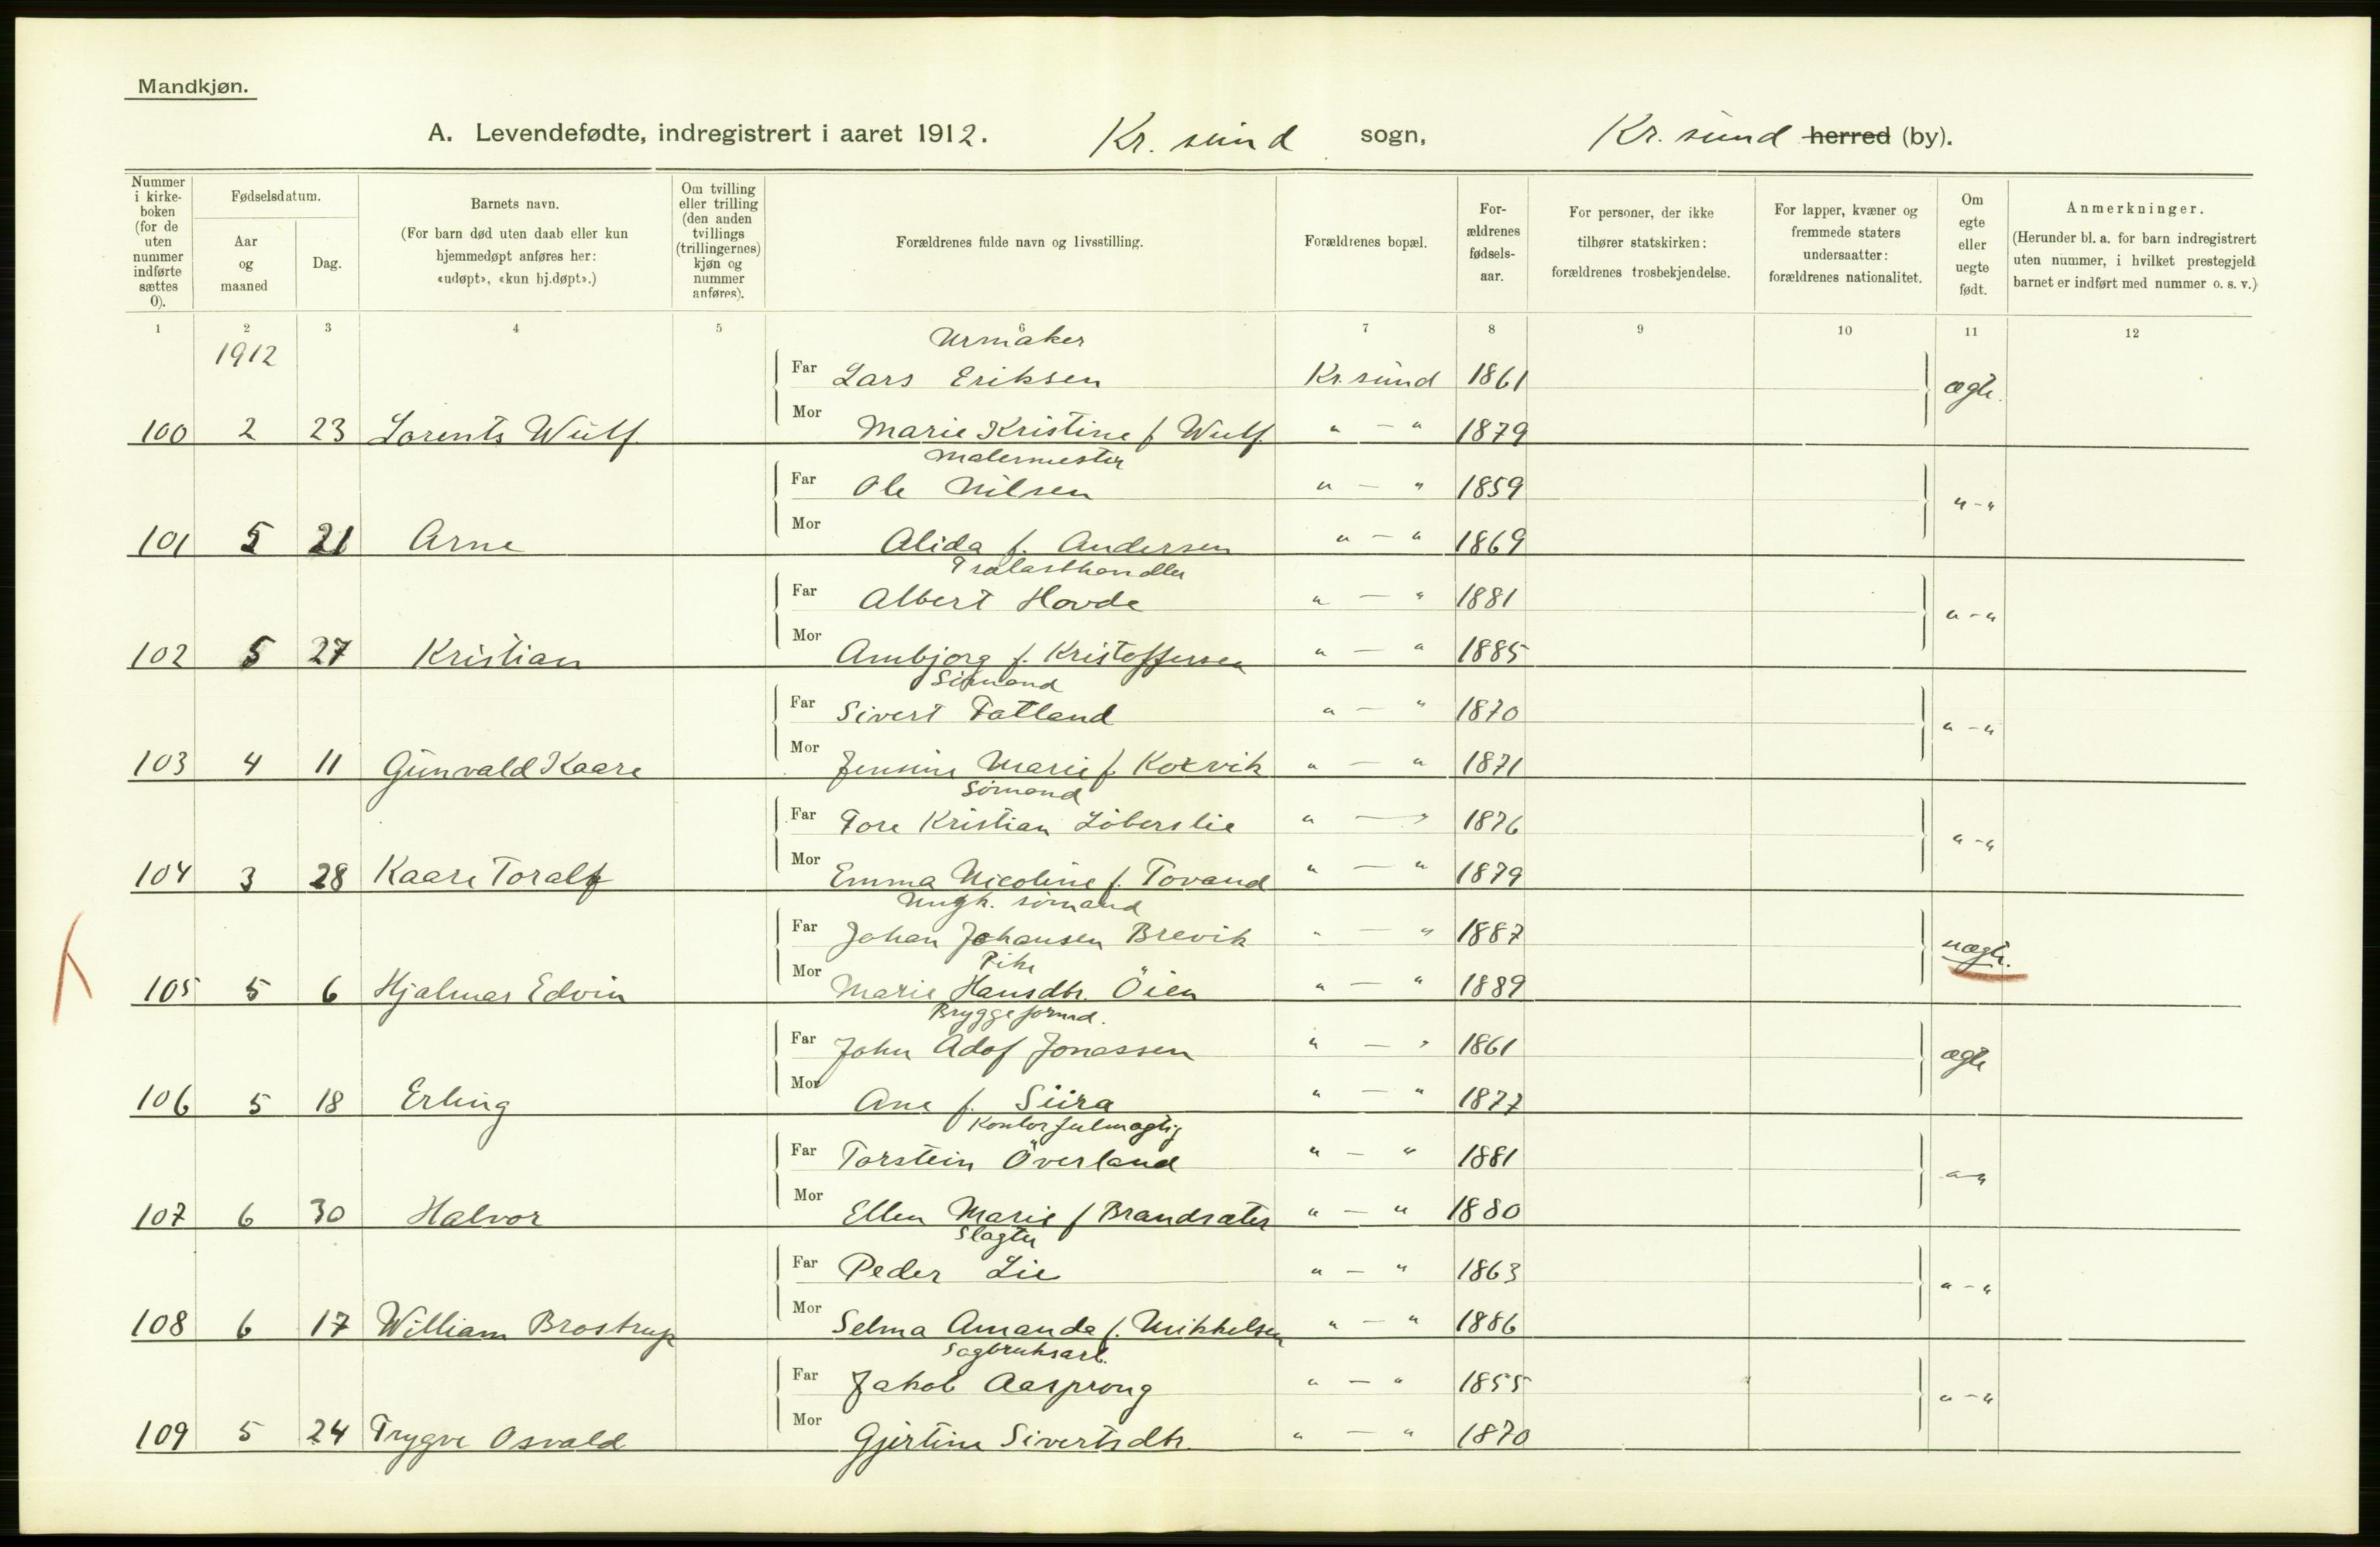 Mandkjøn.
A. Levendefødte, indregistrert i aaret 1912. Kr. sund sogn, Kr. sund herred (by).
Nummer i kirkeboken (for de uten nummer indførte sættes 0).
Fødselsdatum.
Aar og maaned
Dag.
Barnets navn.
(For barn død uten daab eller kun hjemmedøpt anføres her: «udøpt», «kun hj.døpt».)
Om tvilling eller trilling (den anden tvillings (trillingernes) kjøn og nummer anføres).
Forældrenes fulde navn og livsstilling.
Forældrenes bopæl.
Forældrenes fødselsaar.
For personer, der ikke tilhører statskirken: forældrenes trosbekjendelse.
For lapper, kvæner og fremmede staters undersaatter: forældrenes nationalitet.
Om egte eller uegte født.
Anmerkninger.
(Herunder bl. a. for barn indregistrert uten nummer, i hvilket prestegjeld barnet er indført med nummer o. s. v.)
1 2 3 4 5 6 7 8 9 10 11 12
1912
Urmaker
Far Lars Eriksen Kr. sund 1861 ægte.
100 2 23 Lorents Wulf Mor Marie Kristine f Wulf " — " 1879
Malermester
Far Ole Nilsen " — " 1859 " - "
101 5 21 Arne Mor Alida f. Andersen " — " 1869
Trælasthandler
Far Albert Hovde " — " 1881 " - "
102 5 27 Kristian Mor Ambjorg f. Kristoffersen " — " 1885
Sjømand
Far Sivert Tatland " — " 1870 " - "
103 4 11 Gunvald Kaare Mor Jensine Marie f. Korvik " — " 1871
Sømand
Far Tore Kristian Löberslie " — " 1876 " - "
104 3 28 Kaare Toralf Mor Emma Nicoline f. Tovand " — " 1879
Ungk. sømand
Far Johan Johansen Brevik " — " 1887 uægte.
Pike
105 5 6 Hjalmar Edvin Mor Marie Hansdtr. Öien " — " 1889
K
Bryggeformd.
Far John Adof Jonassen " — " 1861 ægte
106 5 18 Erling Mor Ane f. Süra " — " 1877
Kontorfulmægtig
Far Torstein Överland " — " 1881 " "
107 6 30 Halvor Mor Ellen Marie f Brandsæter " — " 1880
Slagter
Far Peder Lie " — " 1863 " - "
108 6 17 William Brostrup Mor Selma Amanda f. Mikkelsen " — " 1886
Sagbruksarb.
Far Jakob Aasprong " — " 1855 " - "
109 5 24 Trygve Osvald Mor Gjertine Sivertsdtr. " — " 1870